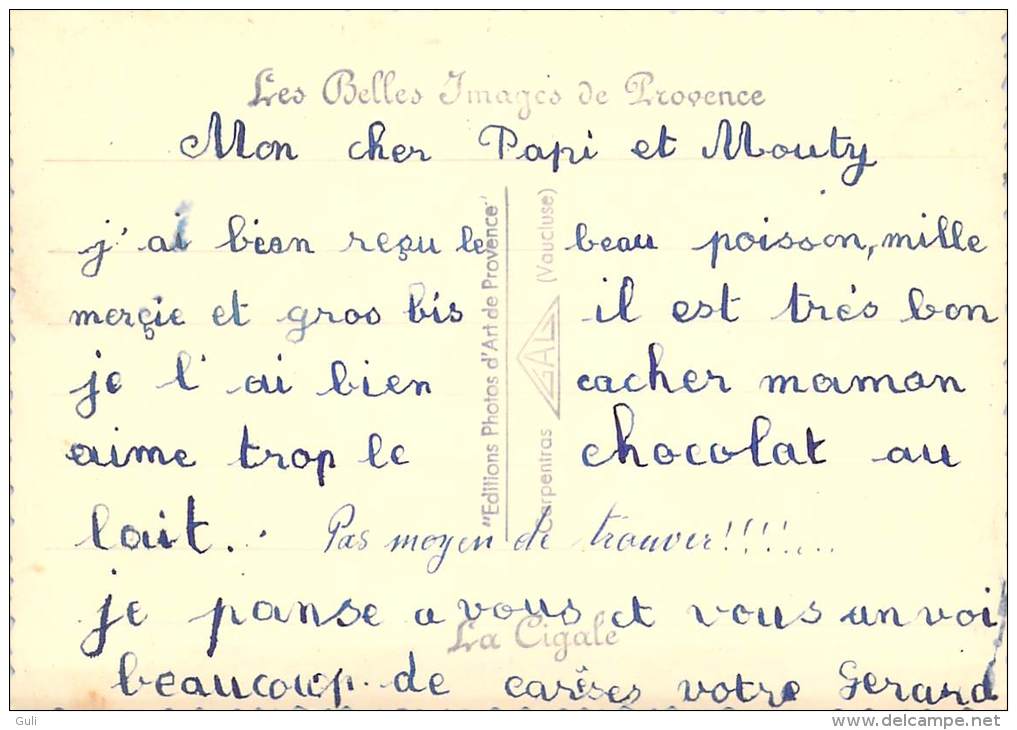 Les Belles Images de Provence
Mon cher Papi et Mouty
j'ai bien reçu le beau poisson, mille
merçie et gros bis il est trés bon
je l'ai bien cacher maman
aime trop le chocolat au
lait.. Pas moyen de trouver!!!!...
je panse a vous et vous anvoi
beaucoup de carêses votre Gerard
"Editions Photos d'Art de Provence"
Carpentras GAL (Vaucluse)
La Cigale
Guli
www.delcampe.net